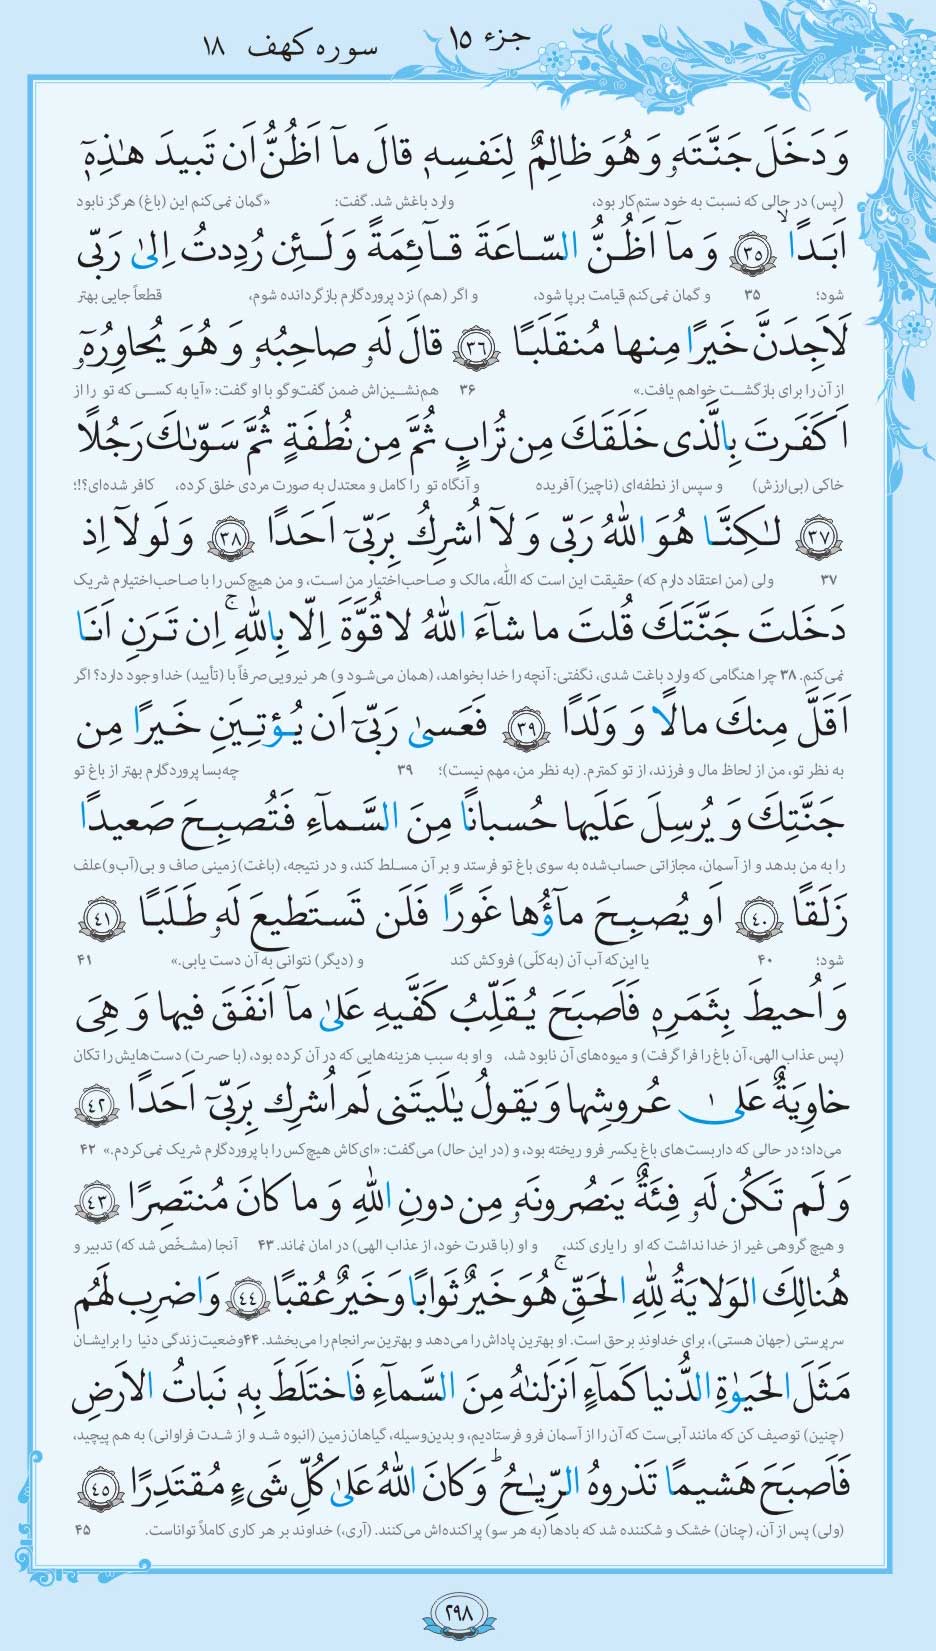 جزء ۱۵
سوره کهف ۱۸
وَ دَخَلَ جَنَّتَهٗ وَ هُوَ ظالِمٌ لِنَفسِهٖ قالَ مآ اَظُنُّ اَن تَبیدَ هٰذِهٖٓ
(پس) در حالی که نسبت به خود ستم‌کار بود، وارد باغش شد. گفت: «گمان نمی‌کنم این (باغ) هرگز نابود
اَبَدًا ۙ ﴿۳۵﴾ وَ مآ اَظُنُّ السّاعَةَ قآئِمَةً وَ لَئِن رُدِدتُ اِلىٰ رَبّی
شود؛ ۳۵ و گمان نمی‌کنم قیامت برپا شود، و اگر (هم) نزد پروردگارم بازگردانده شوم، قطعاً جایی بهتر
لَاَجِدَنَّ خَیرًا مِنها مُنقَلَبًا ﴿۳۶﴾ قالَ لَهٗ صاحِبُهٗ وَ هُوَ یُحاوِرُهٗٓ
از آن را برای بازگشت خواهم یافت.» ۳۶ هم‌نشین‌اش ضمن گفت‌وگو با او گفت: «آیا به کسی که تو را از
اَکَفَرتَ بِالَّذی خَلَقَكَ مِن تُرابٍ ثُمَّ مِن نُطفَةٍ ثُمَّ سَوّىٰكَ رَجُلًا
خاکی (بی‌ارزش) و سپس از نطفه‌ای (ناچیز) آفریده و آنگاه تو را کامل و معتدل به صورت مردی خلق کرده، کافر شده‌ای؟!؛
﴿۳۷﴾ لٰکِنَّا هُوَ اللّٰهُ رَبّی وَ لآ اُشرِكُ بِرَبّیٓ اَحَدًا ﴿۳۸﴾ وَ لَولآ اِذ
۳۷ ولی (من اعتقاد دارم که) حقیقت این است که الله، مالک و صاحب‌اختیار من است، و من هیچ‌کس را با صاحب‌اختیارم شریک
دَخَلتَ جَنَّتَكَ قُلتَ ما شآءَ اللّٰهُ لا قُوَّةَ اِلّا بِاللّٰهِ ۚ اِن تَرَنِ اَنَا
نمی‌کنم. ۳۸ چرا هنگامی که وارد باغت شدی، نگفتی: آنچه را خدا بخواهد، (همان می‌شود و) هر نیرویی صرفاً با (تأیید) خدا وجود دارد؟ اگر
اَقَلَّ مِنكَ مالًا وَ وَلَدًا ﴿۳۹﴾ فَعَسىٰ رَبّیٓ اَن یُؤتِیَنِ خَیرًا مِن
به نظر تو، من از لحاظ مال و فرزند، از تو کمترم. (به نظر من، مهم نیست)؛ ۳۹ چه‌بسا پروردگارم بهتر از باغ تو
جَنَّتِكَ وَ یُرسِلَ عَلَیها حُسبانًا مِنَ السَّمآءِ فَتُصبِحَ صَعیدًا
را به من بدهد و از آسمان، مجازاتی حساب‌شده به سوی باغ تو فرستد و بر آن مسلط کند، و در نتیجه، (باغت) زمینی صاف و بی(آب‌و)علف
زَلَقًا ﴿۴۰﴾ اَو یُصبِحَ مآؤُها غَورًا فَلَن تَستَطیعَ لَهٗ طَلَبًا ﴿۴۱﴾
شود؛ ۴۰ یا این‌که آب آن (به‌کلّی) فروکش کند و (دیگر) نتوانی به آن دست یابی.» ۴۱
وَ اُحیطَ بِثَمَرِهٖ فَاَصبَحَ یُقَلِّبُ کَفَّیهِ عَلىٰ مآ اَنفَقَ فیها وَ هِیَ
(پس عذاب الهی، آن باغ را فرا گرفت) و میوه‌های آن نابود شد، و او به سبب هزینه‌هایی که در آن کرده بود، (با حسرت) دست‌هایش را تکان
خاوِیَةٌ عَلىٰ عُروشِها وَ یَقولُ یٰلَیتَنی لَم اُشرِك بِرَبّیٓ اَحَدًا ﴿۴۲﴾
می‌داد؛ در حالی که داربست‌های باغ یکسر فرو ریخته بود، و (در این حال) می‌گفت: «ای‌کاش هیچ‌کس را با پروردگارم شریک نمی‌کردم.» ۴۲
وَ لَم تَکُن لَهٗ فِئَةٌ یَنصُرونَهٗ مِن دونِ اللّٰهِ وَ ما کانَ مُنتَصِرًا ﴿۴۳﴾
و هیچ گروهی غیر از خدا نداشت که او را یاری کند، و او (با قدرت خود، از عذاب الهی) در امان نماند. ۴۳ آنجا (مشخّص شد که) تدبیر و
هُنالِكَ الوَلایَةُ لِلّٰهِ الحَقِّ ۚ هُوَ خَیرٌ ثَوابًا وَ خَیرٌ عُقبًا ﴿۴۴﴾ وَ اضرِب لَهُم
سرپرستی (جهان هستی)، برای خداوندِ برحق است. او بهترین پاداش را می‌دهد و بهترین سرانجام را می‌بخشد. ۴۴ وضعیت زندگی دنیا را برایشان
مَثَلَ الحَیوٰةِ الدُّنیا کَمآءٍ اَنزَلنٰهُ مِنَ السَّمآءِ فَاختَلَطَ بِهٖ نَباتُ الاَرضِ
(چنین) توصیف کن که مانند آبی‌ست که آن را از آسمان فرو فرستادیم، و بدین‌وسیله، گیاهان زمین (انبوه شد و از شدت فراوانی) به هم پیچید،
فَاَصبَحَ هَشیمًا تَذروهُ الرِّیٰحُ ؕ وَ کانَ اللّٰهُ عَلىٰ کُلِّ شَیءٍ مُقتَدِرًا ﴿۴۵﴾
(ولی) پس از آن، (چنان) خشک و شکننده شد که بادها (به هر سو) پراکنده‌اش می‌کنند. (آری،) خداوند بر هر کاری کاملاً تواناست. ۴۵
۲۹۸